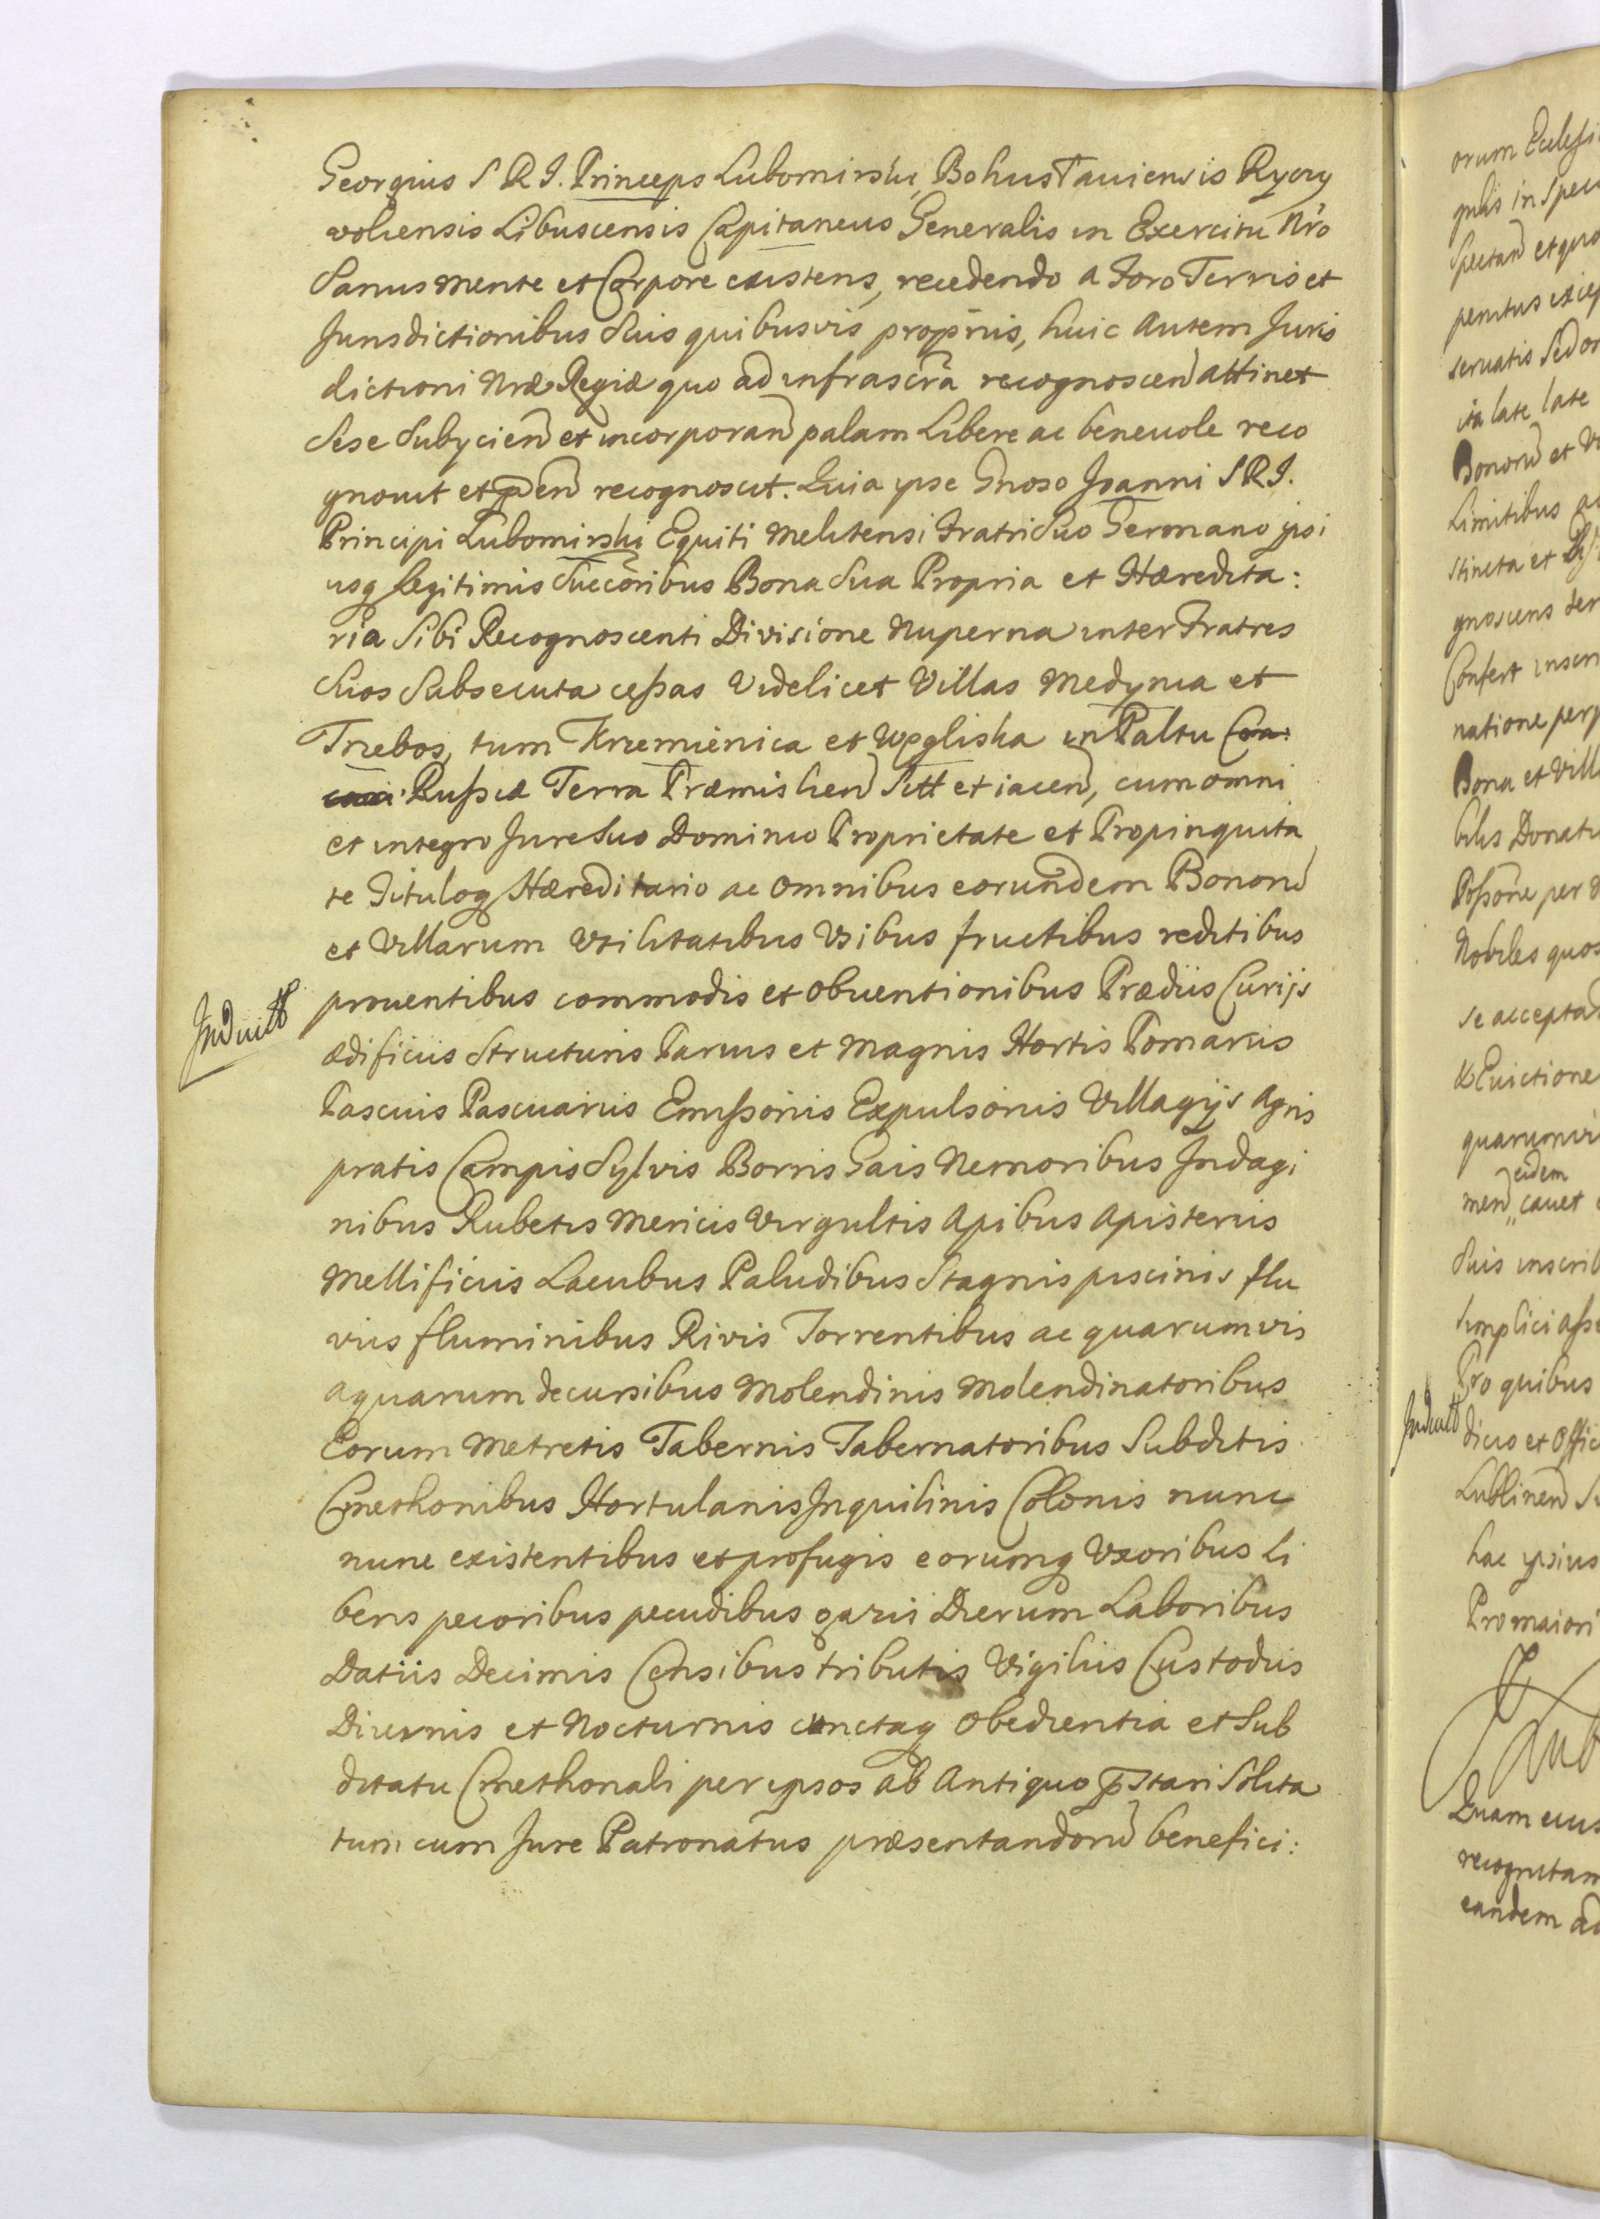 Georgius S R I. Princeps Lubomirski, Bohustauiensis Ryczy
woliensis Libuscensis Capitaneus Generalis in Exercitu Nr̃o
Sanus mente et Corpore existens, recedendo a Foro Terris et
Jurisdictionibus Suis quibusvis proprijs, huic autem Juris
dictioni Nræ Regiæ quo ad infrascr̃a recognoscen attinet
Sese Subycien et incorporan palam Libere ac beneuole reco
gnouit et p̃ñ recognoscit. Quia ipse Gnoso Joanni S R I.
Principi Lubomirski Equiti Melitensi Fratri Suo Germano ipsi
usq legitimis Succõribus Bona Sua Propria et Hæredita:
ria Sibi Recognoscenti Divisione Nuperna inter Fratres
Suos Subsecuta cessas Videlicet Villas Medynia et
Trzebos, tum Krzemienica et Węgliska in Paltu
Russiæ Terra Præmislien Sitt et iacen, cum omni
et integro Jure Suo Dominio Proprietate et Propinquita
te Titulog Hæreditario ac omnibus eorundem Bonoru
et Villarum Vtilitatibus Vsibus fructibus reditibus
prouentibus commodis et obuentionibus Prædiis Curijs
ædificiis Structuris Paruis et Magnis Hortis Pomariis
Pascuis Pascuariis Emissoriis Expulsoriis Villagijs Agris
pratis Campis Sylvis Borris Gais Nemoribus Indagi
nibus Rubetis Mericis Virgultis Apibus Apisteriis
Mellificiis Lacubus Paludibus Stagnis piscinis flu
viis fluminibus Rivis Torrentibus ac quarumvis
aquarum decursibus Molendinis Molendinatoribus
Eorum Metretis Tabernis Tabernatoribus Subditis
Cmethonibus Hortulanis Inquilinis Colonis nunc
nunc existentibus et profugis eorumq Vxoribus Li
beris pecoribus pecudibus gazis Dierum Laboribus
Datiis Decimis Censibus tributis Vigiliis Custodiis
Diurnis et Nocturnis cunctaq obedientia et Sub
ditatu Cmethonali per ipsos ab Antiquo p̃stari Solita
tum cum Jure Patronatus præsentandoru benefici:
Induitt
orum Ecclesi
penitus excep
seruatis Sed
ita late late
Bonoru et
Limitibus
stincta et
gnoscens
Confert
natione per
Bona et Vill
bilis Donat
Possõne per
Nobiles quos
se accepta
Evictione
quarumvis
eidem
men cauet
Suis inscrib
Simplici asse
Pro quibus
dicio et Offic
Lublinen
hac ipsius
Pro maiori
Quam eius
recognitam
eandem